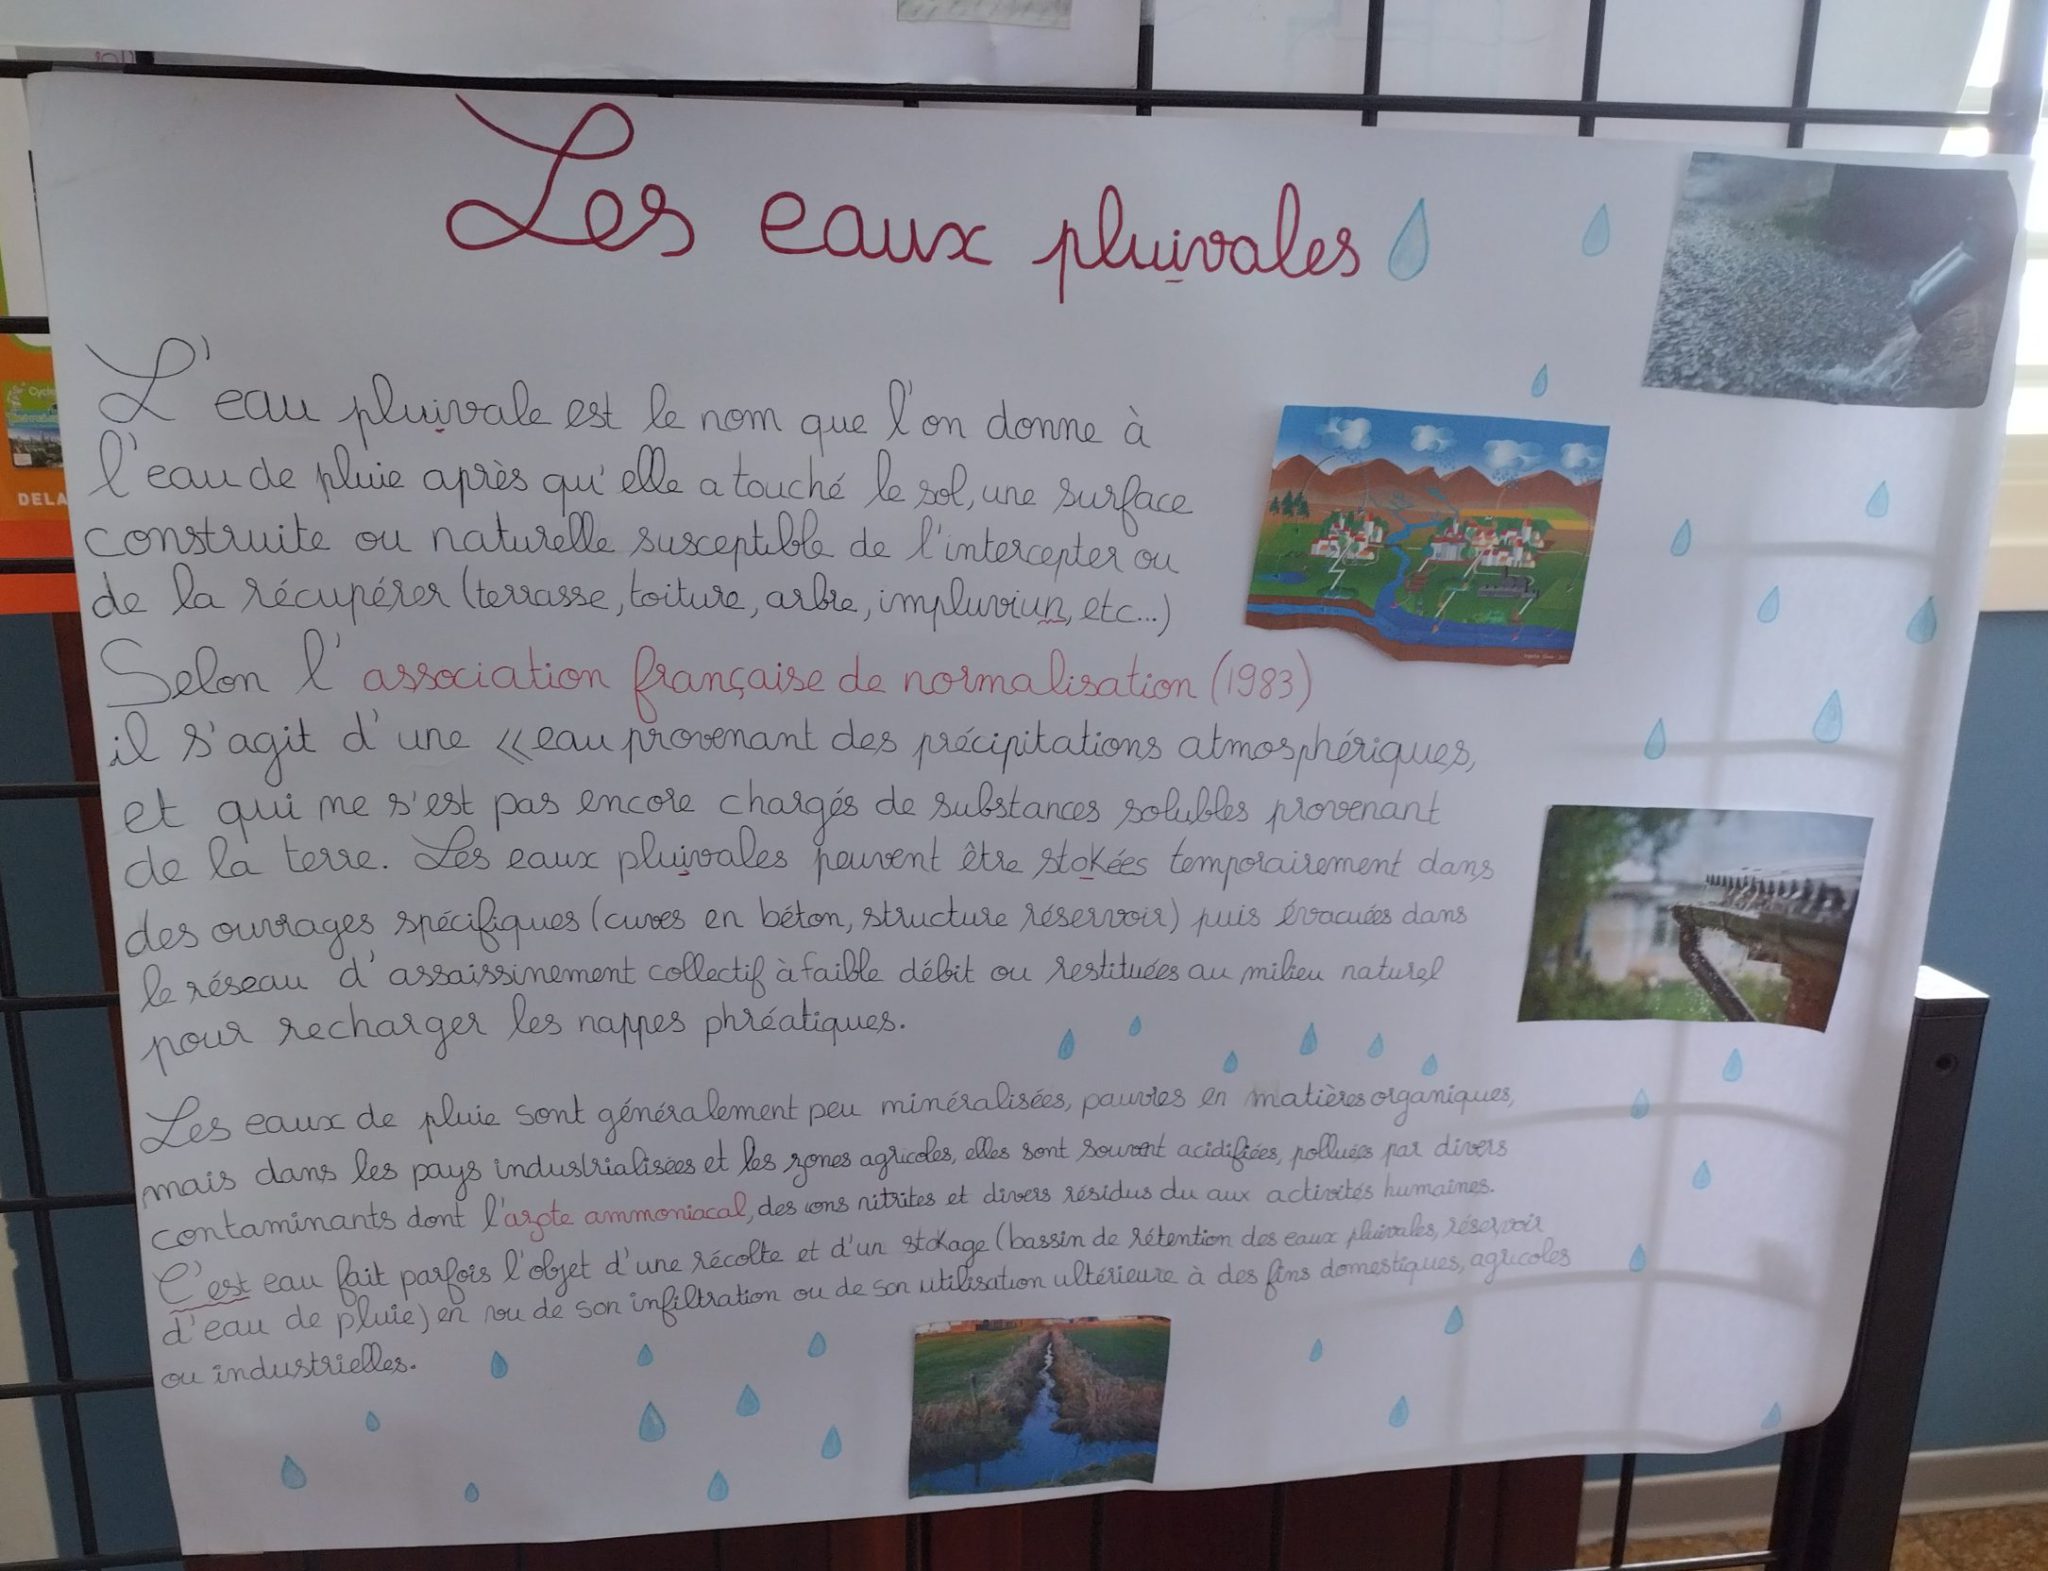 Les eaux pluivales
L'eau pluivale est le nom que l'on donne à
l'eau de pluie après qu'elle a touché le sol, une surface
construite ou naturelle susceptible de l'intercepter ou
de la récupérer (terrasse, toiture, arbre, impluviun, etc...)
Selon l'association française de normalisation (1983)
il s'agit d'une «eau provenant des précipitations atmosphériques,
et qui me s'est pas encore chargés de substances solubles provenant
de la terre. Les eaux pluivales peuvent être stokées temporairement dans
des ouvrages spécifiques (cuves en béton, structure réservoir) puis évacuées dans
le réseau d'assaissinement collectif à faible débit ou restituées au milieu naturel
pour recharger les nappes phréatiques.
Les eaux de pluie sont généralement peu minéralisées, pauvres en matières organiques,
mais dans les pays industrialisées et les zones agricoles, elles sont souvent acidifiées, polluées par divers
contaminants dont l'azote ammoniacal, des ions nitrites et divers résidus du aux activités humaines.
C'est eau fait parfois l'objet d'une récolte et d'un stokage (bassin de rétention des eaux pluivales, réservoir
d'eau de pluie) en vu de son infiltration ou de son utilisation ultérieure à des fins domestiques, agricoles
ou industrielles.
Cycle
DELA